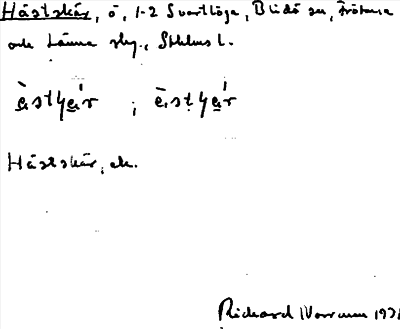 Hästskär, ö, 1-2 Svartlöga, Blidö sn, Frötuna
och Länna skg., Sthlms l.
Hästskär, ek.
Richard Norrman 193